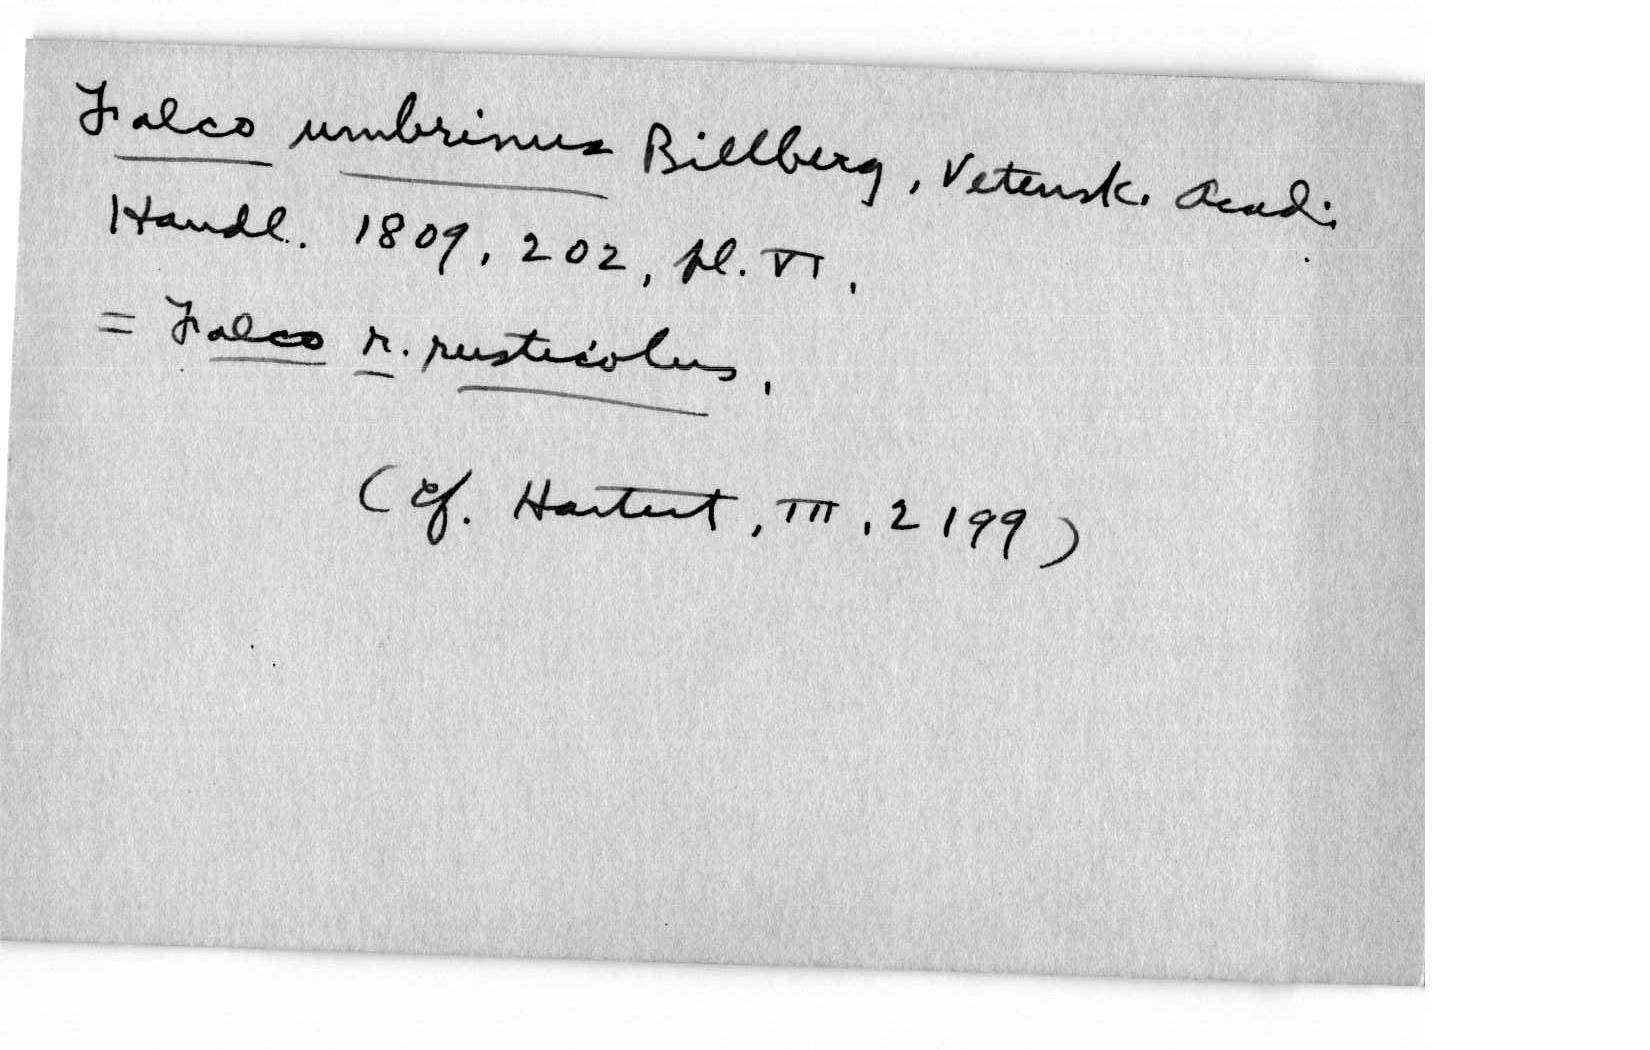 Falco umbrinus Billberg, Vetensk. Acad.
Handl. 1809, 202, pl. VI.
= Falco r. rusticolus.
(Cf. Hartert, III, 2199)